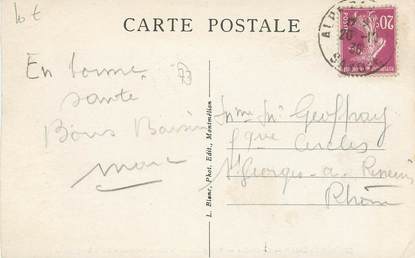 lot
CARTE POSTALE
20
En bonne
santé
Bons Baisers
Marc
73
L. Blanc, Phot. Edit., Montmélian
Geoffray
Cercles
St Georges-de-Reneins
Rhône